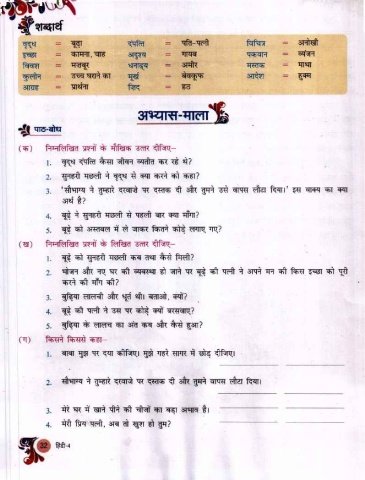 शब्दार्थ
वृद्ध = बूढ़ा दंपत्ति = पति-पत्नी विचित्र = अनोखी
इच्छा = कामना, चाह अदृश्य = गायब पकवान = व्यंजन
विवश = मजबूर धनाढ्य = अमीर मस्तक = माथा
कुलीन = उच्च घराने का मूर्ख = बेवकूफ आदेश = हुक्म
आग्रह = प्रार्थना जिद = हठ
अभ्यास-माला
पाठ-बोध
(क) निम्नलिखित प्रश्नों के मौखिक उत्तर दीजिए–
1. वृद्ध दंपत्ति कैसा जीवन व्यतीत कर रहे थे?
2. सुनहरी मछली ने वृद्ध से क्या करने को कहा?
3. 'सौभाग्य ने तुम्हारे दरवाजे पर दस्तक दी और तुमने उसे वापस लौटा दिया।' इस वाक्य का क्या
अर्थ है?
4. बूढ़े ने सुनहरी मछली से पहली बार क्या माँगा?
5. बूढ़े को अस्तबल में ले जाकर कितने कोड़े लगाए गए?
(ख) निम्नलिखित प्रश्नों के लिखित उत्तर दीजिए–
1. बूढ़े को सुनहरी मछली कब तथा कैसे मिली?
2. भोजन और नए घर की व्यवस्था हो जाने पर बूढ़े की पत्नी ने अपने मन की किस इच्छा को पूरी
करने की माँग की?
3. बुढ़िया लालची और धूर्त थी। बताओ, क्यों?
4. बूढ़े की पत्नी ने उस पर कोड़े क्यों बरसवाए?
5. बुढ़िया के लालच का अंत कब और कैसे हुआ?
(ग) किसने किससे कहा–
1. बाबा मुझ पर दया कीजिए। मुझे गहरे सागर में छोड़ दीजिए।
2. सौभाग्य ने तुम्हारे दरवाजे पर दस्तक दी और तुमने वापस लौटा दिया।
3. मेरे घर में खाने पीने की चीजों का बड़ा अभाव है।
4. मेरी प्रिय पत्नी, अब तो खुश हो तुम?
32 हिंदी-4